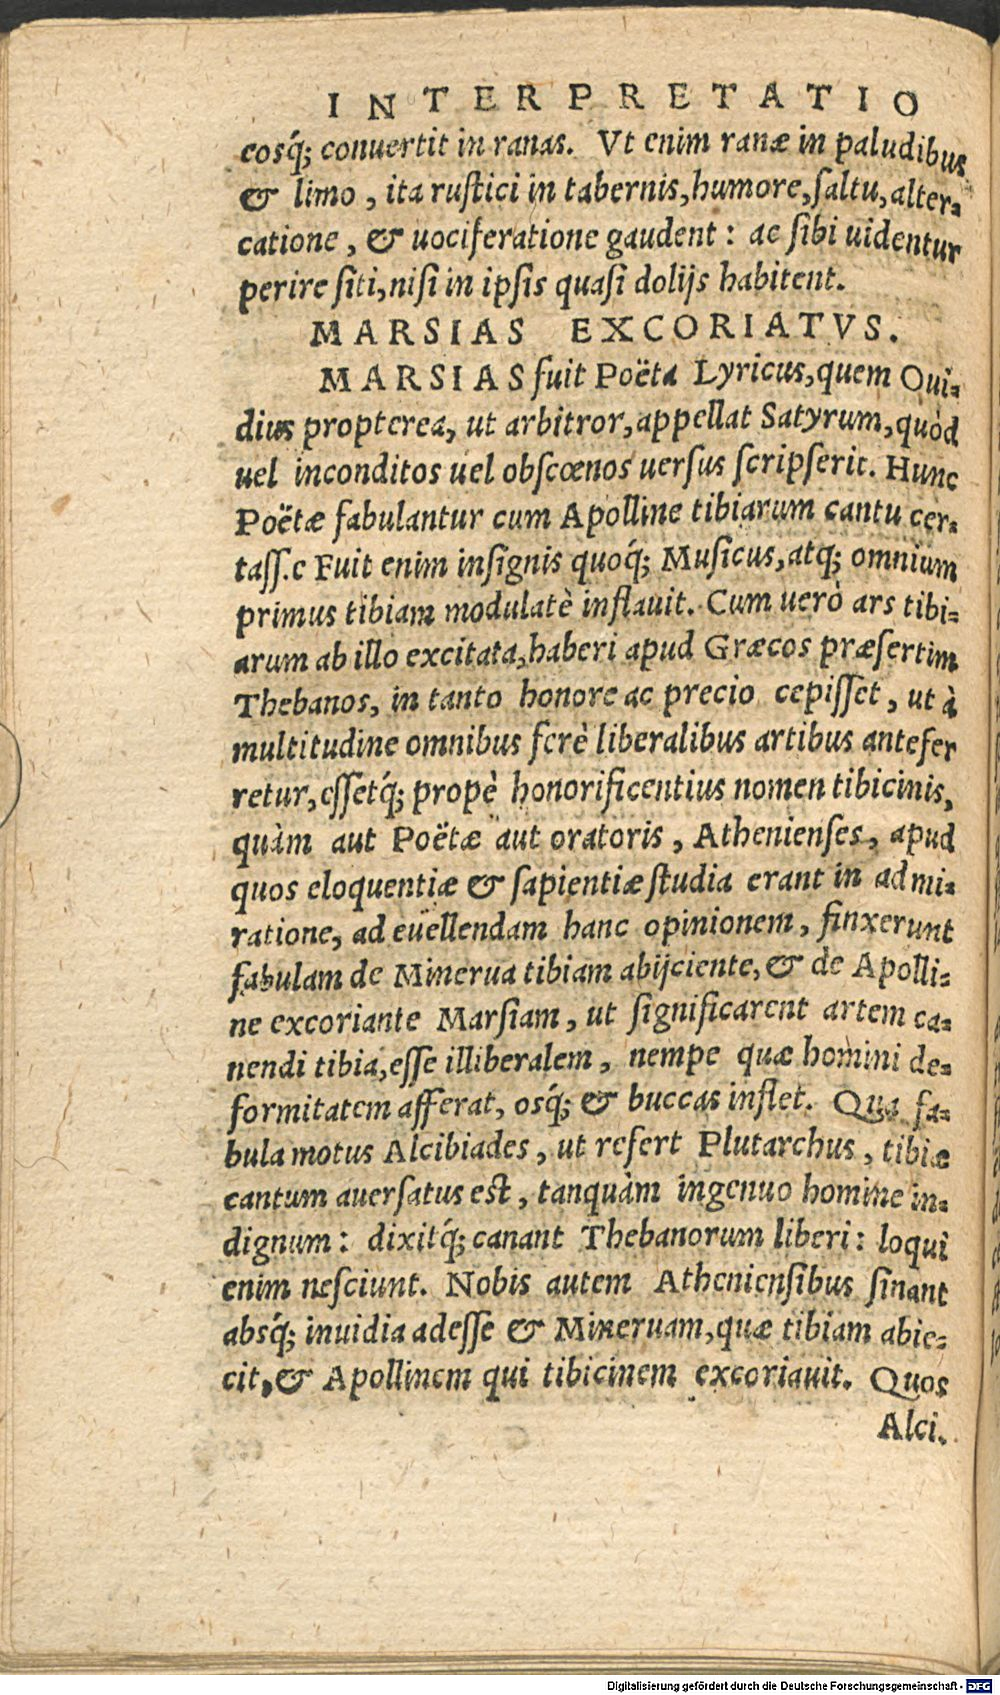 INTERPRETATIO
eosq́; conuertit in ranas. Vt enim ranæ in paludibus
& limo, ita rustici in tabernis, humore, saltu, alter-
catione, & uociferatione gaudent: ac sibi uidentur
perire siti, nisi in ipsis quasi dolijs habitent.
MARSIAS EXCORIATVS.
MARSIAS fuit Poëta Lyricus, quem Oui-
dius propterea, ut arbitror, appellat Satyrum, quòd
uel inconditos uel obscœnos uersus scripserit. Hunc
Poëtæ fabulantur cum Apolline tibiarum cantu cer-
tass.e Fuit enim insignis quoq́; Musicus, atq; omnium
primus tibiam modulatè inflauit. Cum uerò ars tibi-
arum ab illo excitata, haberi apud Græcos præsertim
Thebanos, in tanto honore ac precio cepisset, ut à
multitudine omnibus ferè liberalibus artibus antefer
retur, essetq́; propè honorificentius nomen tibicinis,
quàm aut Poëtæ aut oratoris, Athenienses, apud
quos eloquentiæ & sapientiæ studia erant in admi-
ratione, ad euellendam hanc opinionem, finxerunt
fabulam de Minerua tibiam abijciente, & de Apolli-
ne excoriante Marsiam, ut significarent artem ca-
nendi tibia, esse illiberalem, nempe quæ homini de-
formitatem afferat, osq́; & buccas inflet. Qua fa-
bula motus Alcibiades, ut refert Plutarchus, tibiæ
cantum auersatus est, tanquàm ingenuo homine in-
dignum: dixitq́; canant Thebanorum liberi: loqui
enim nesciunt. Nobis autem Atheniensibus sinant
absq́; inuidia adesse & Mineruam, quæ tibiam abie-
cit, & Apollinem qui tibicinem excoriauit. Quos
Alci.
Digitalisierung gefördert durch die Deutsche Forschungsgemeinschaft - DFG